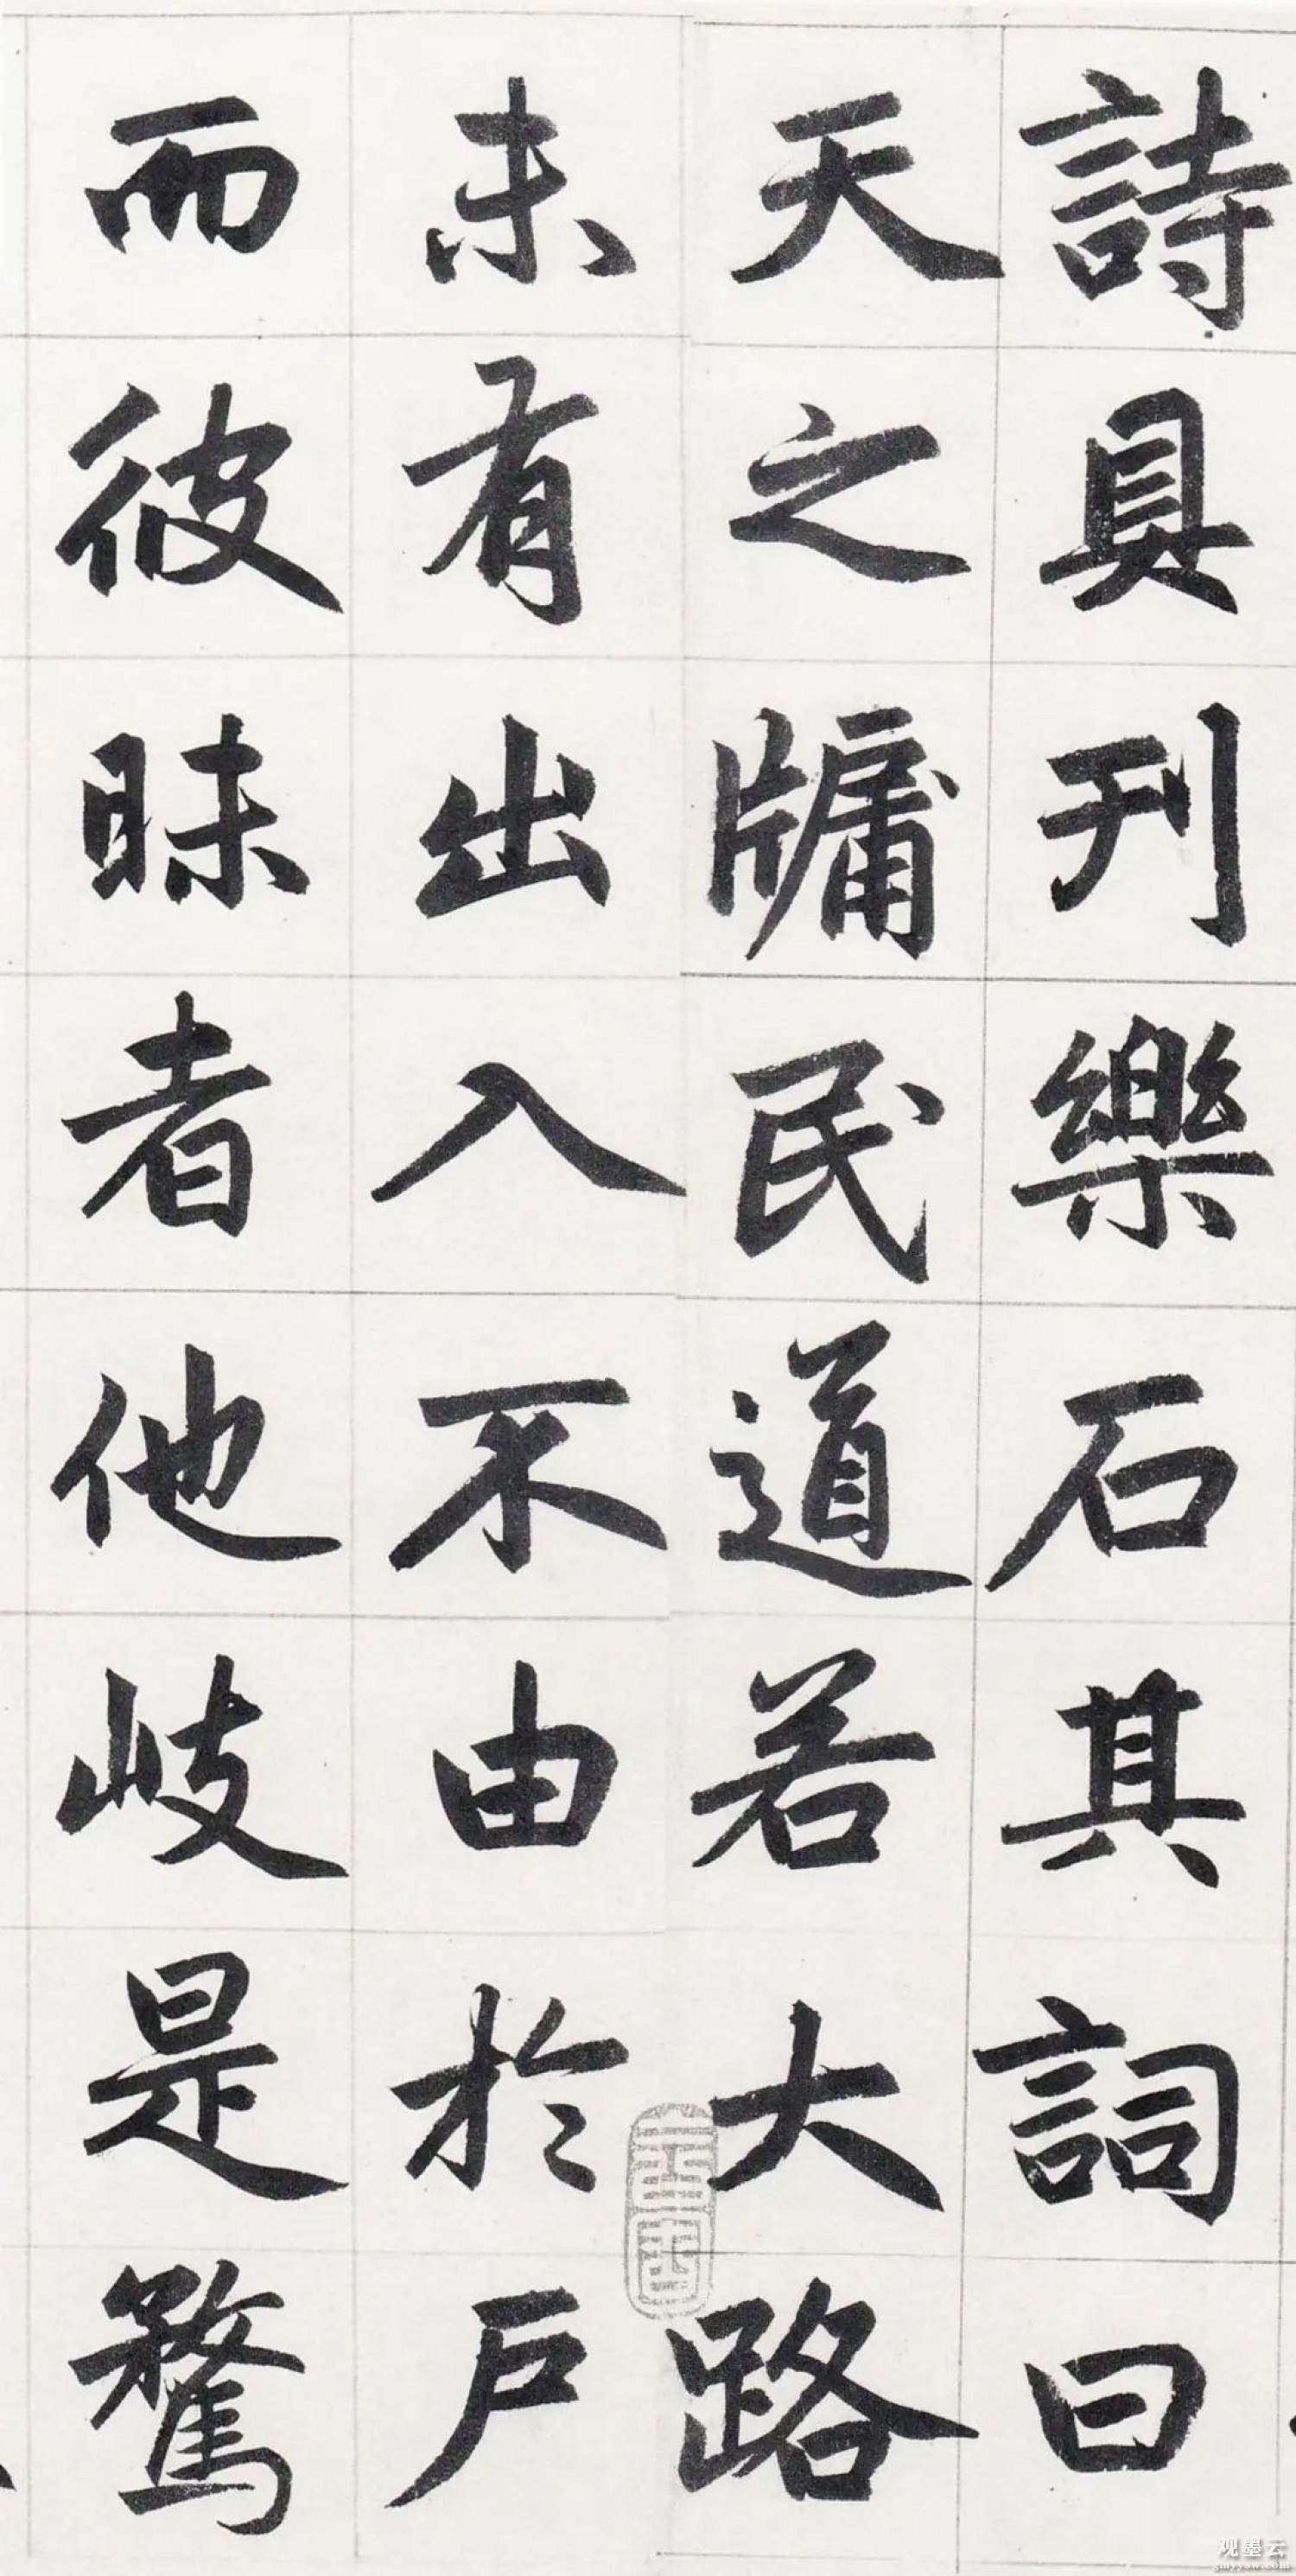 詩具刊樂石其詞曰
天之牖民道若大路
未有出入不由於戶
而彼昧者他岐是騖
观墨云
gmyysw.com